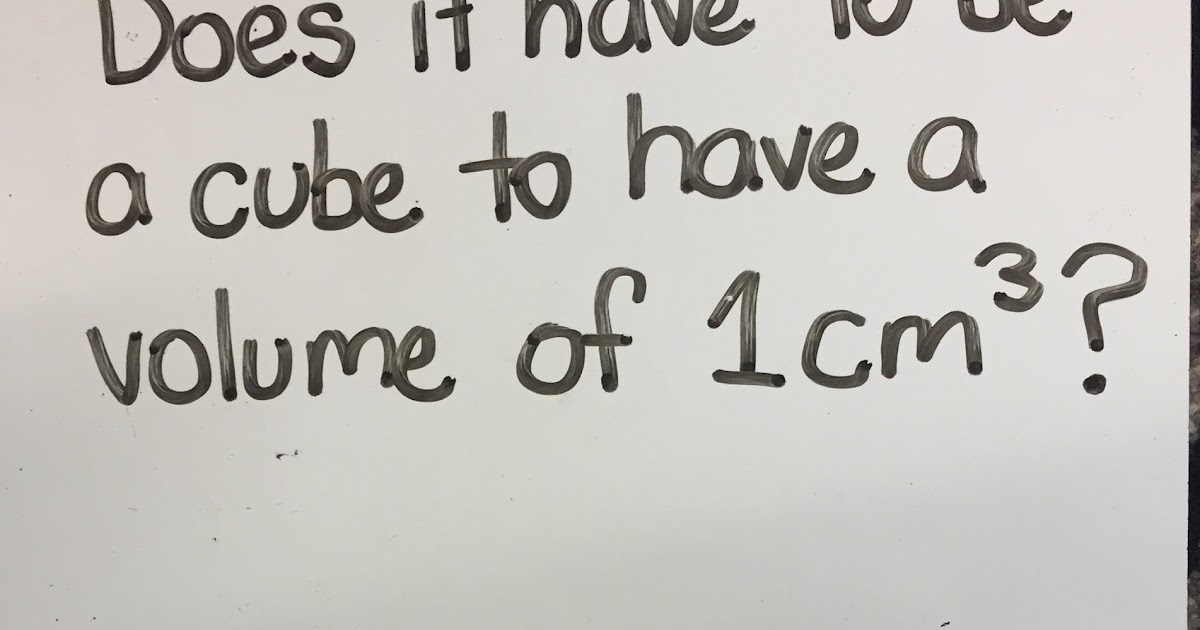 Does it have to be
a cube to have a
volume of 1cm³?